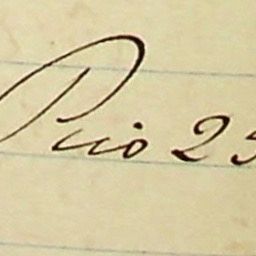 Rio 25